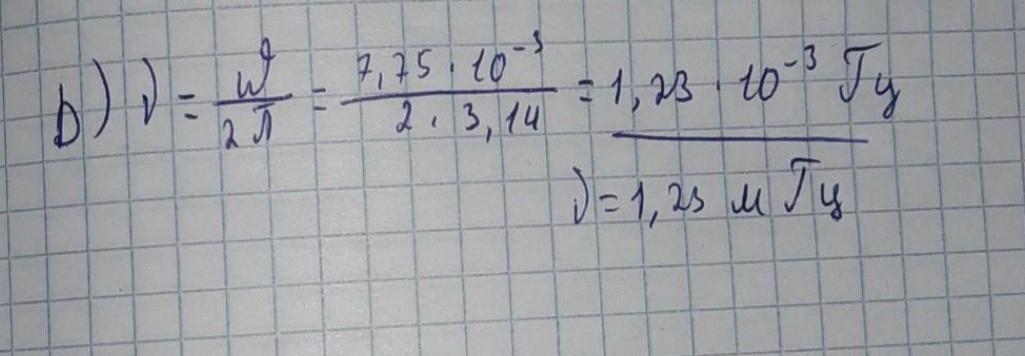 b) ν = ω / 2π = 7,75 · 10⁻³ / 2 · 3,14 = 1,23 · 10⁻³ Гц
ν = 1,23 мГц